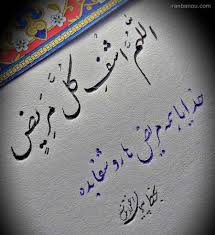 ranbanou.com
اللهم اشف كل مريض
خدایا همه مریض ها رو شفا بده